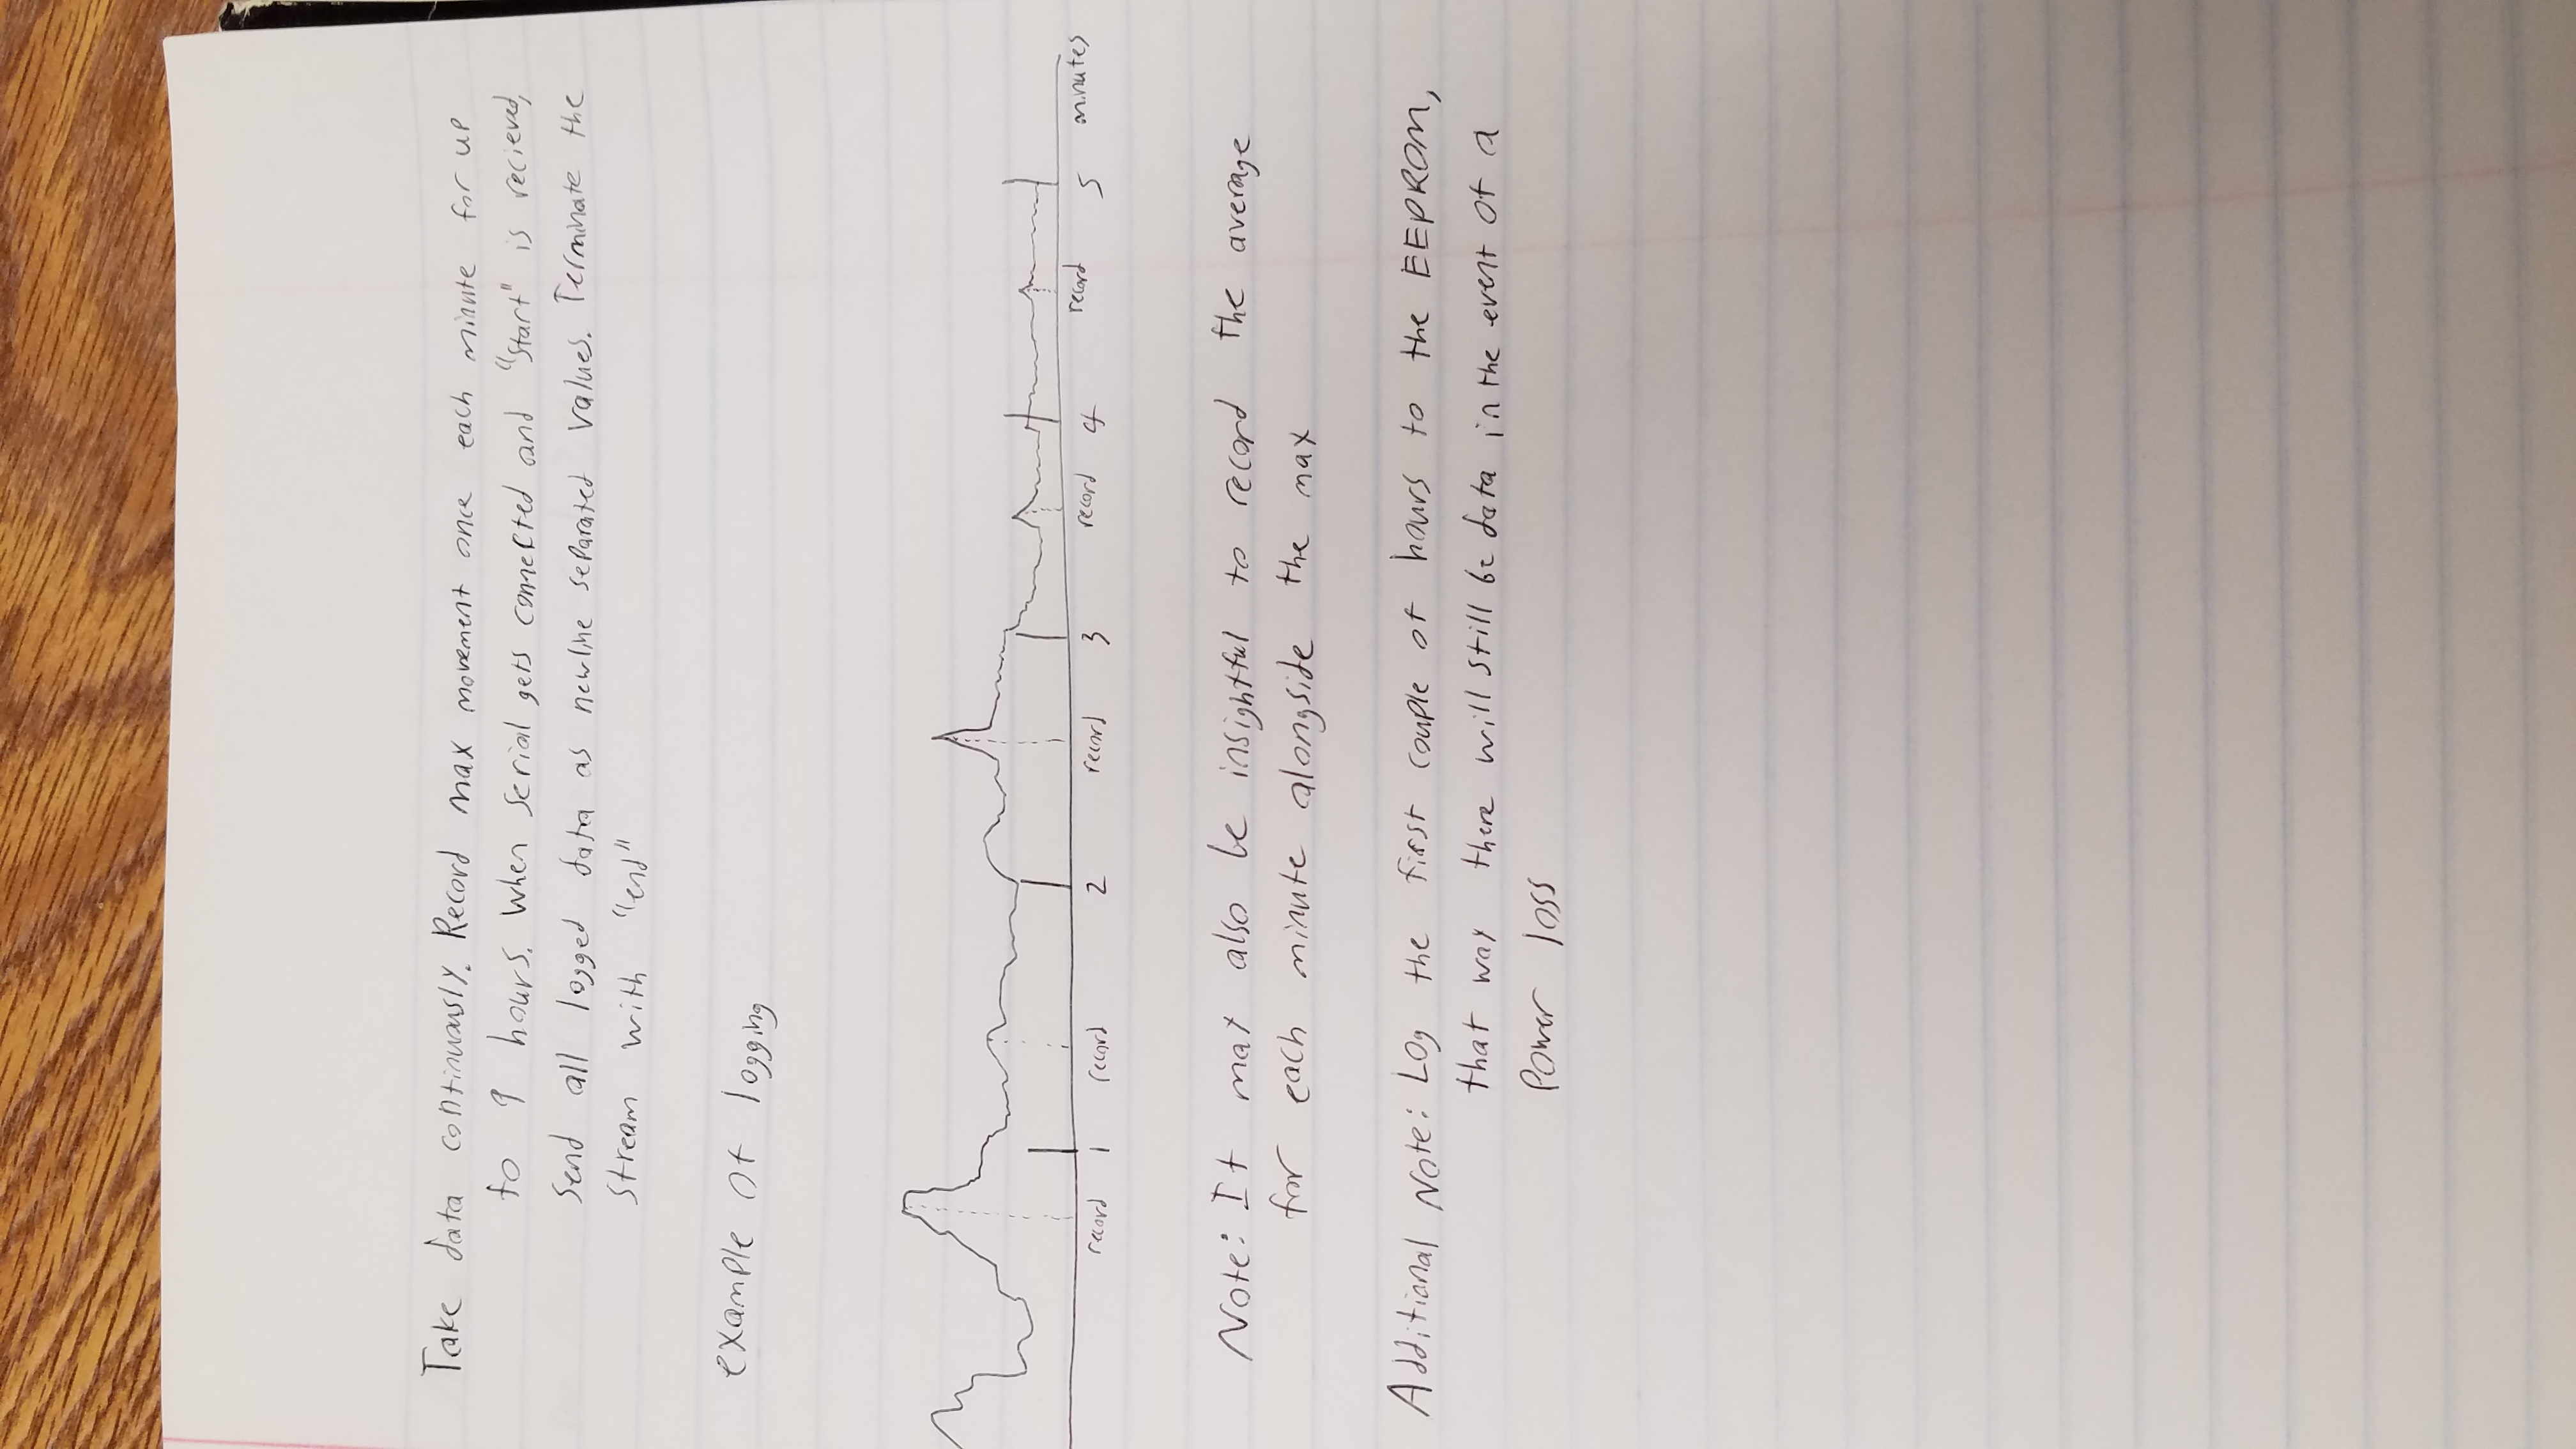 Take data continuously. Record max movement once each minute for up
to 9 hours. When serial gets connected and "Start" is recieved,
send all logged data as newline separated values. Terminate the
stream with "end"
example of logging
record 1 record 2 record 3 record 4 record 5 minutes
Note: It may also be insightful to record the average
for each minute alongside the max
Additional Note: Log the first couple of hours to the EEPROM,
that way there will still be data in the event of a
power loss